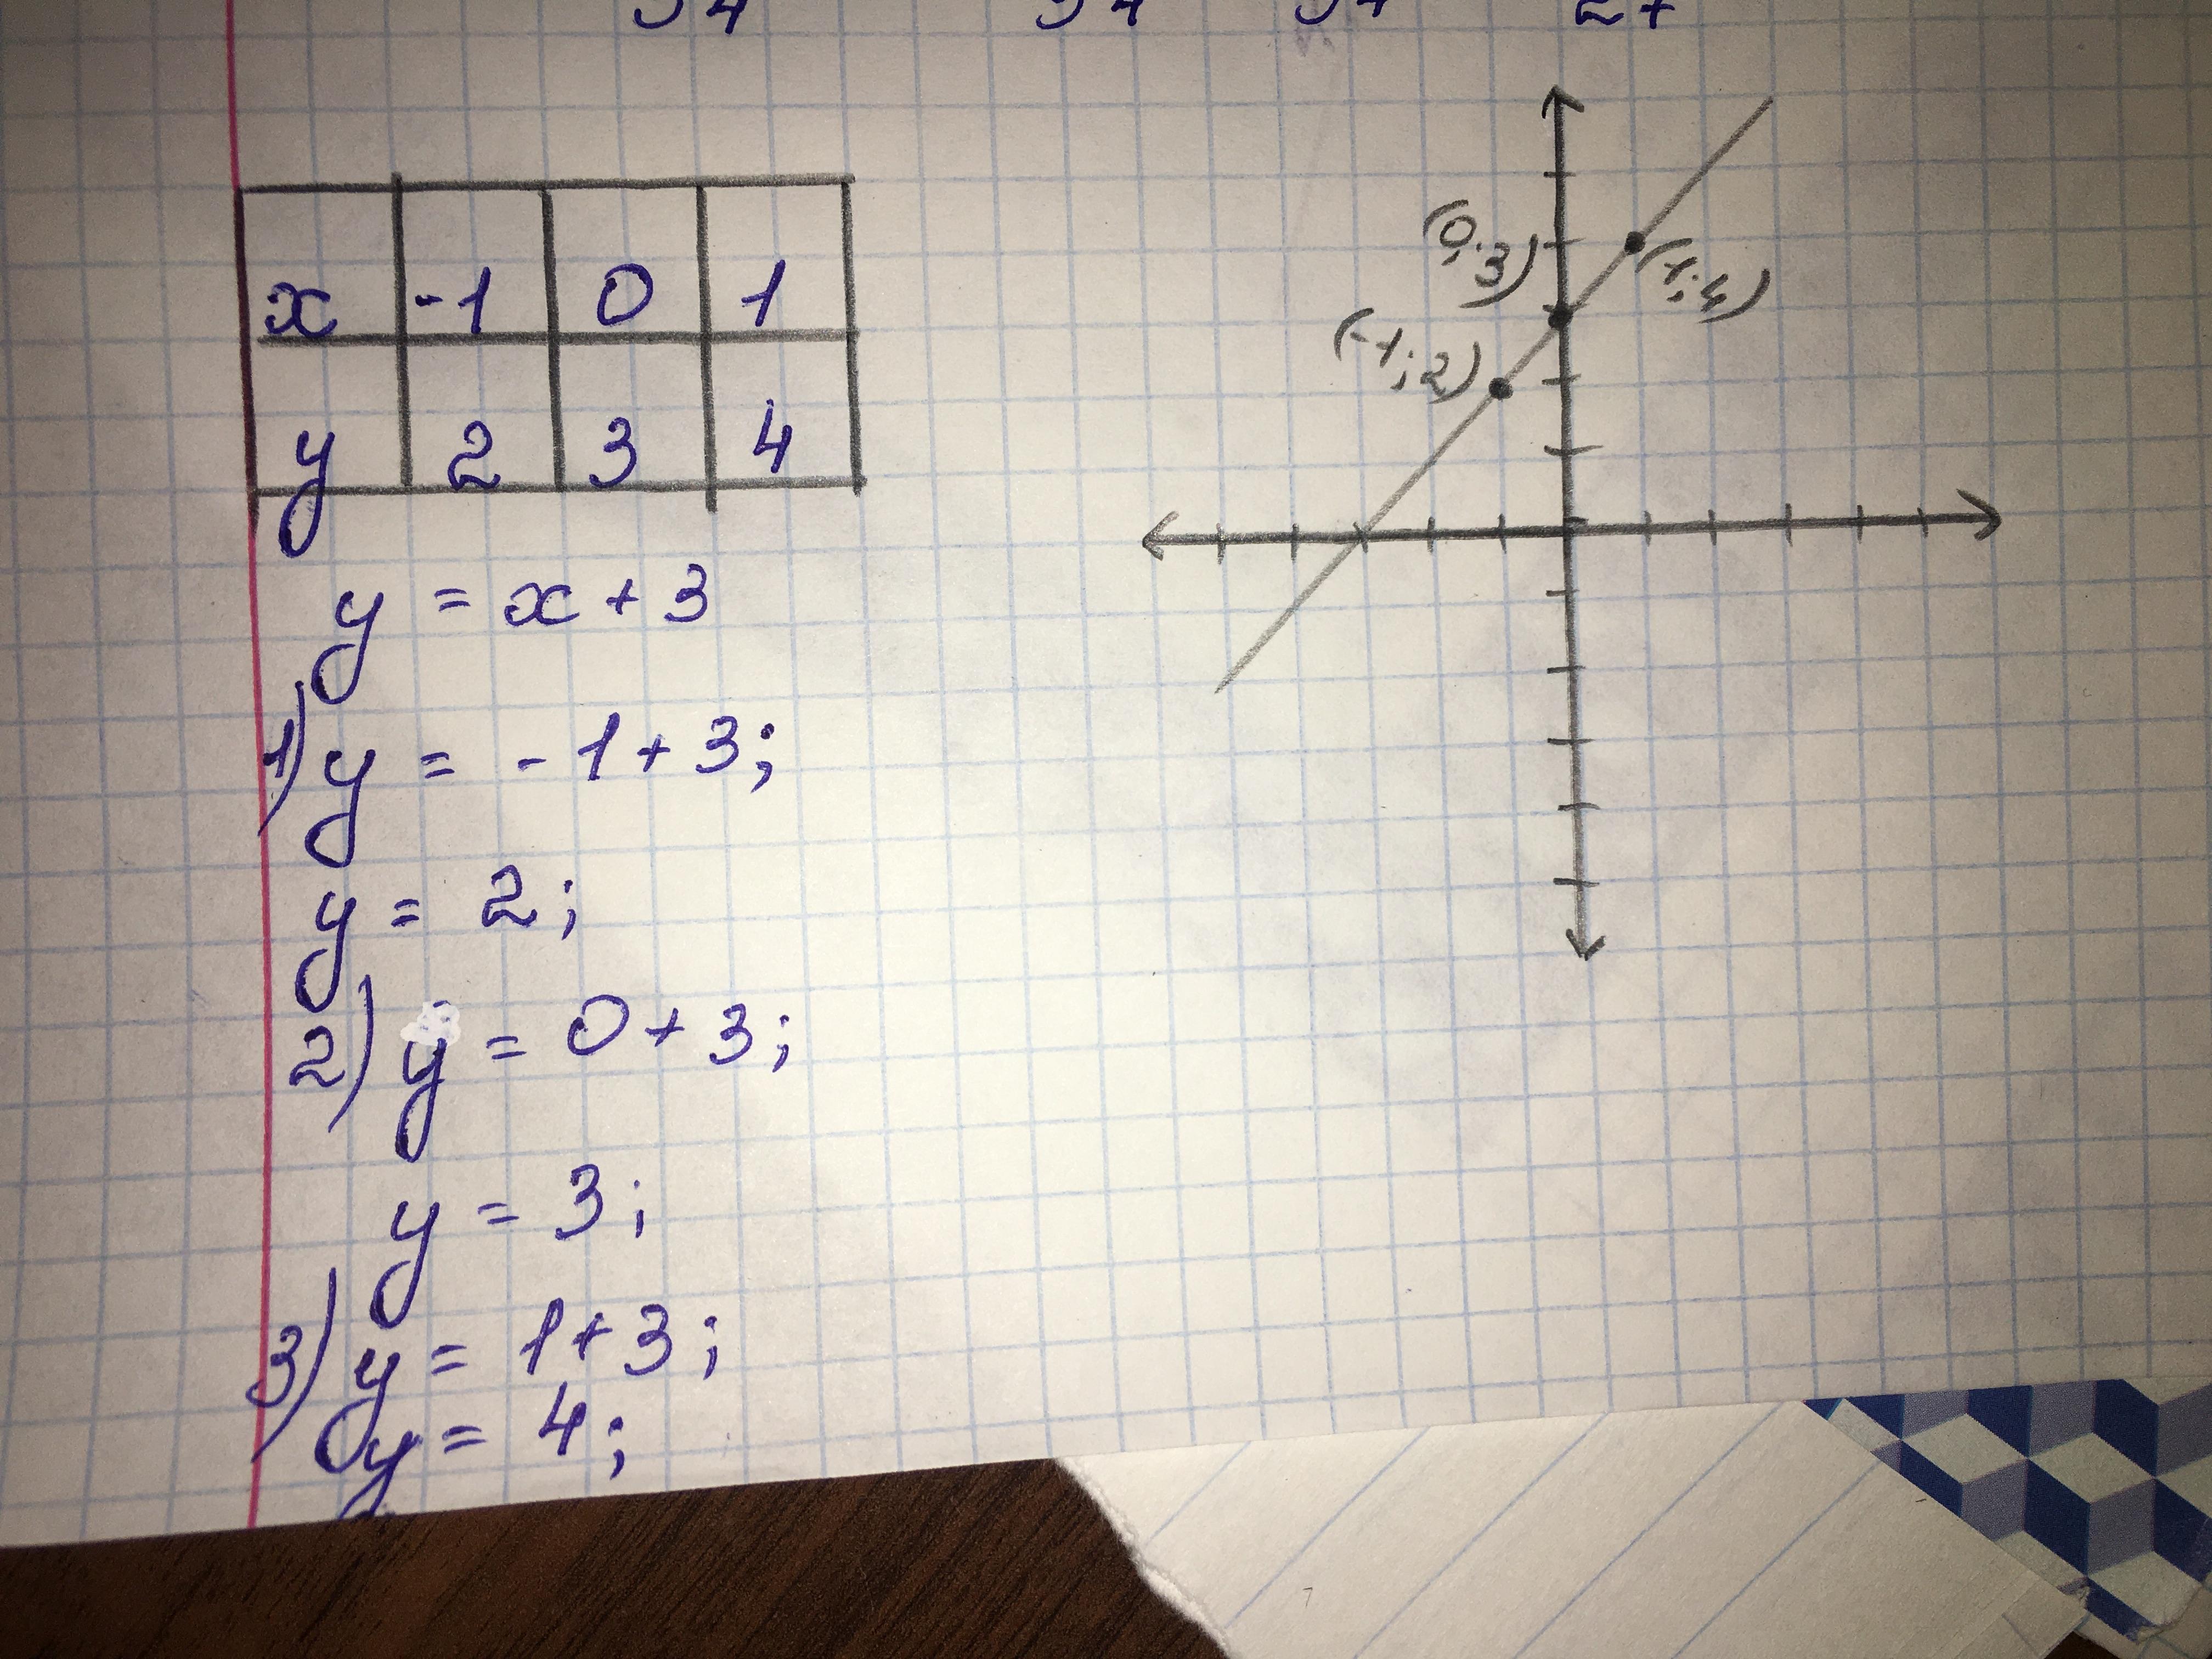 x -1 0 1
y 2 3 4
y = x + 3
1) y = - 1 + 3;
y = 2;
2) y = 0 + 3;
y = 3;
3) y = 1 + 3;
y = 4;
(0; 3)
(1; 4)
(-1; 2)